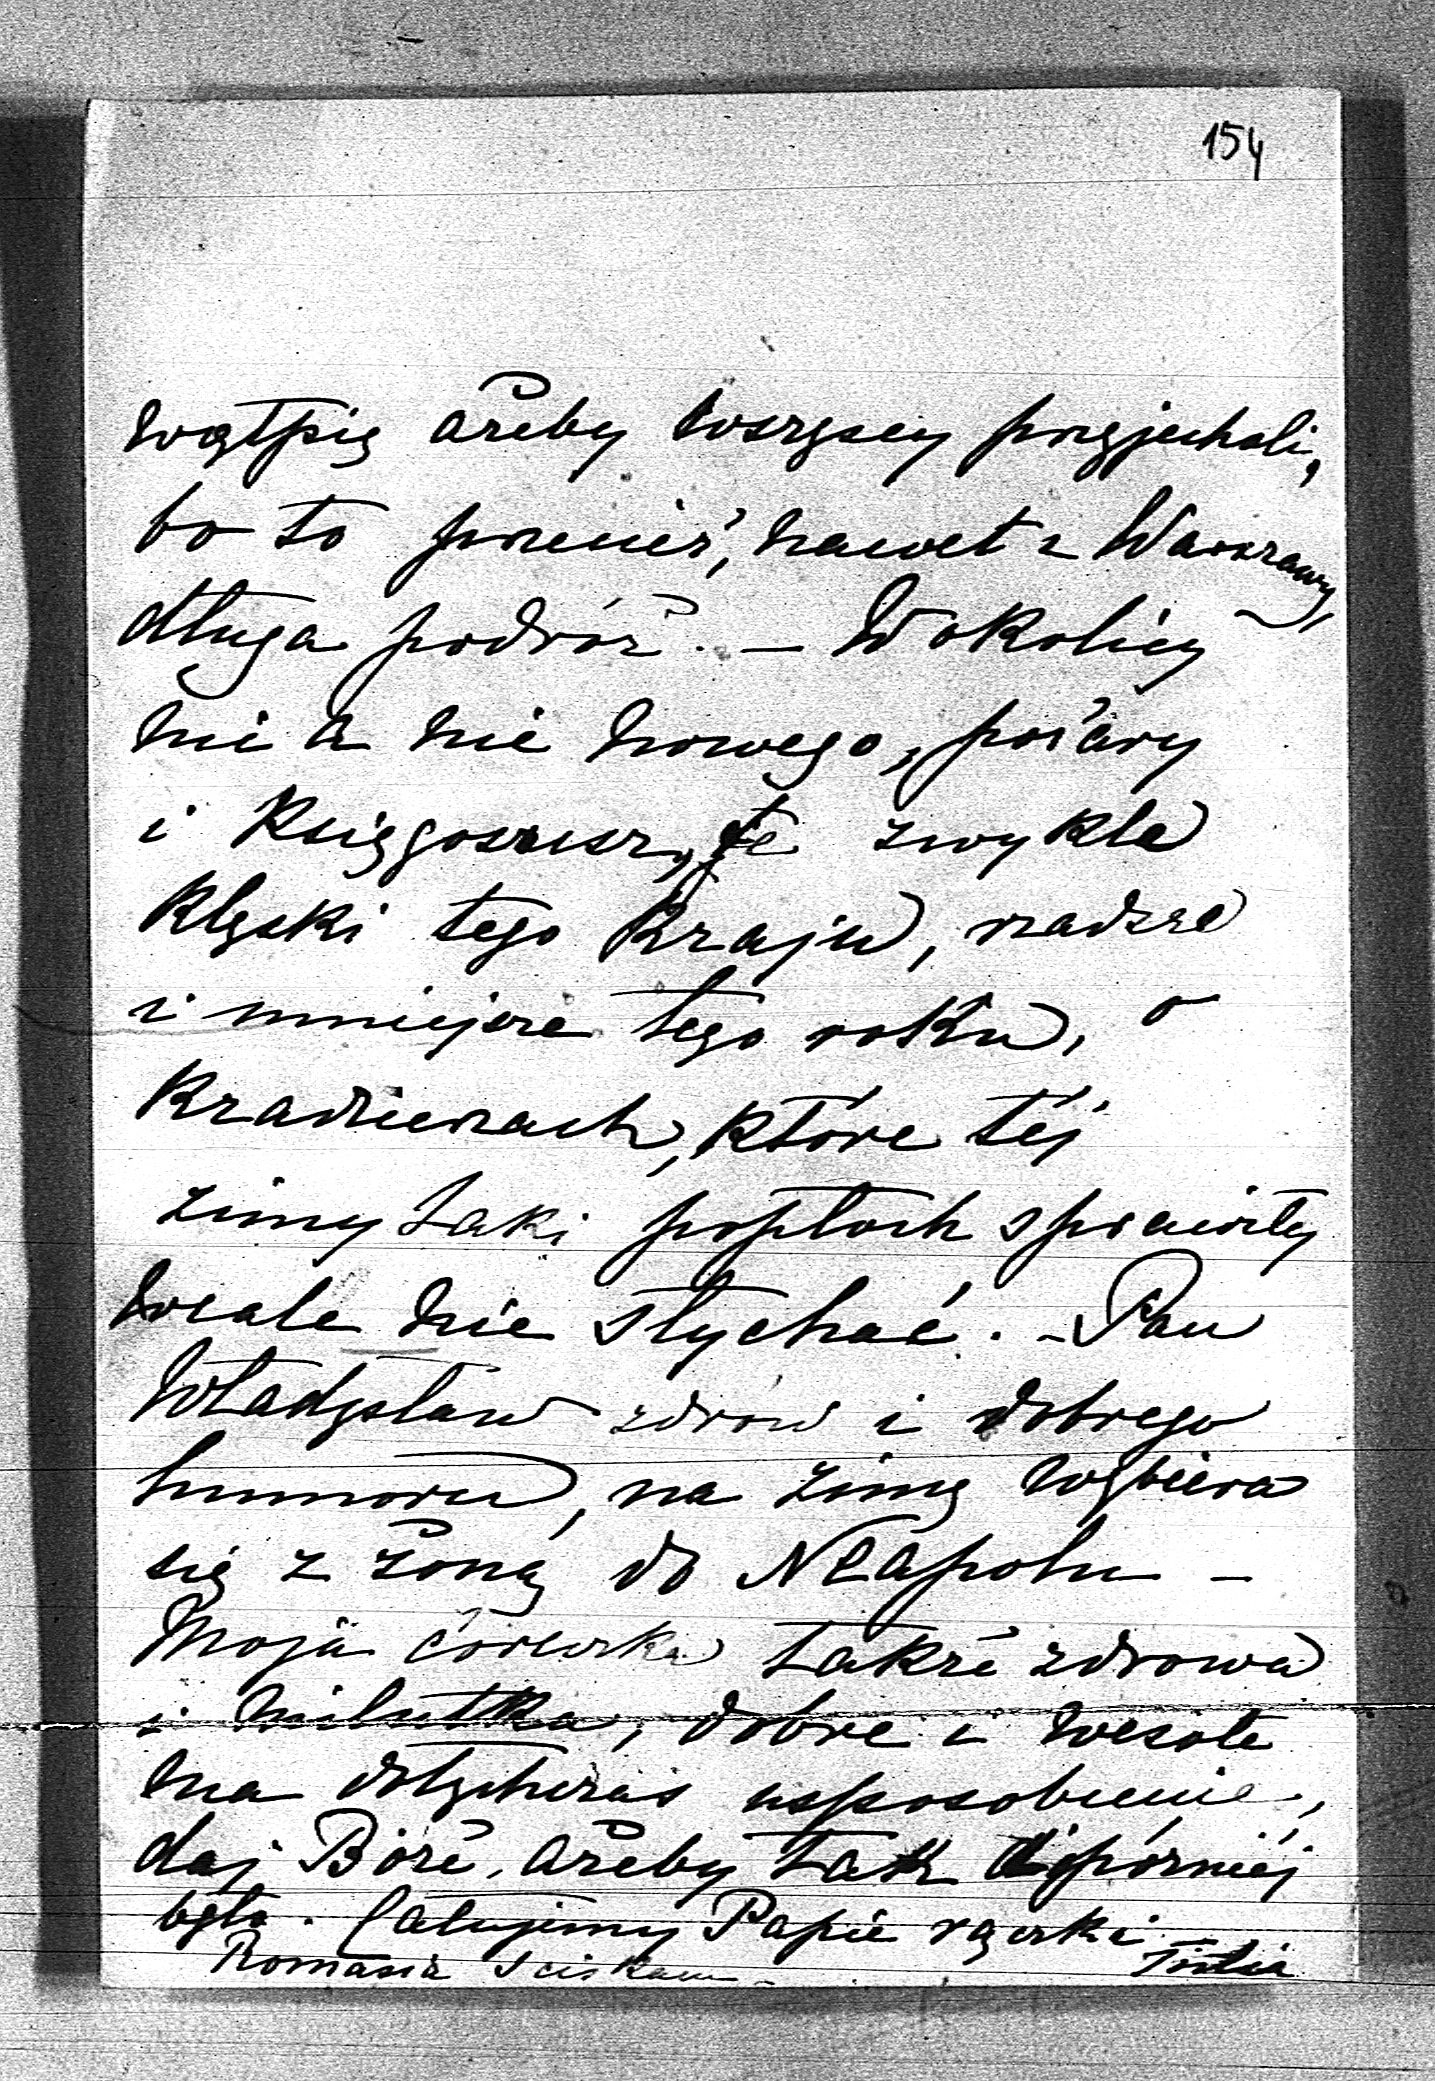 154
wątpię ażeby wszyscy przyjechali,
bo to przecież, nawet z Warszawy,
długa podróż. – W okolicy
nic a nic nowego, pożary
i księgosusz, te zwykłe
klęski tego kraju, rzadsze
i mniejsze tego roku, o
kradzieżach, które téj
zimy taki popłoch sprawiły
wcale nie słychać. – Pan
Władysław zdrów i dobrego
humoru, na zimę wybiera
się z żoną do Neapolu –
Moja córeczka także zdrowa
i milutka, dobre i wesołe
ma dotychczas usposobienie,
daj Boże, ażeby tak i późniéj
było. Całujemy Papie rączki
Romasia ściskam –